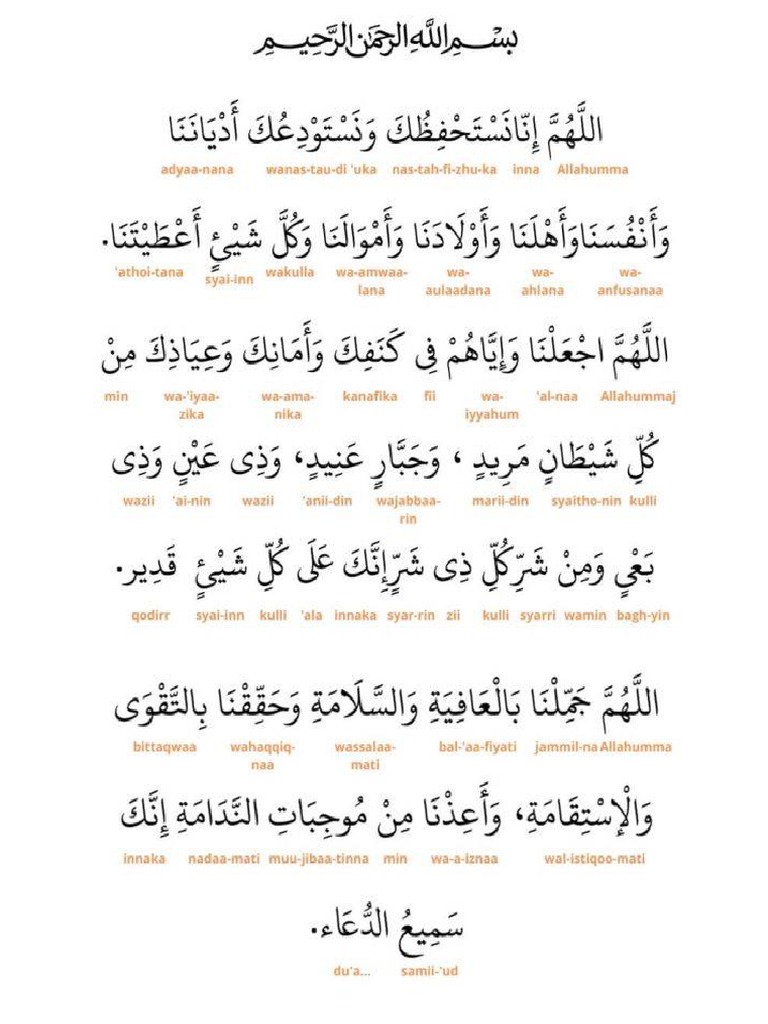 بِسْمِ اللَّهِ الرَّحْمَٰنِ الرَّحِيمِ
اللَّهُمَّ إِنَّانَسْتَحْفِظُكَ وَنَسْتَوْدِعُكَ أَدْيَانَنَا
Allahumma inna nas-tah-fi-zhu-ka wanas-tau-di 'uka adyaa-nana
وَأَنْفُسَنَاوَأَهْلَنَا وَأَوْلَادَنَا وَأَمْوَالَنَا وَكُلَّ شَيْئٍ أَعْطَيْتَنَا.
wa- wa- wa- wa-amwaa- wakulla syai-inn 'athoi-tana
anfusanaa ahlana aulaadana lana
اللَّهُمَّ اجْعَلْنَا وَإِيَّاهُمْ فِى كَنَفِكَ وَأَمَانِكَ وَعِيَاذِكَ مِنْ
Allahummaj 'al-naa wa- fii kanafika wa-ama- wa-'iyaa- min
iyyahum nika zika
كُلِّ شَيْطَانٍ مَرِيدٍ ، وَجَبَّارٍ عَنِيدٍ، وَذِى عَيْنٍ وَذِى
kulli syaitho-nin marii-din wajabbaa- 'anii-din wazii 'ai-nin wazii
rin
بَغْيٍ وَمِنْ شَرِّكُلِّ ذِى شَرٍّإِنَّكَ عَلَى كُلِّ شَيْئٍ قَدِير.
bagh-yin wamin syarri kulli zii syar-rin innaka 'ala kulli syai-inn qodirr
اللَّهُمَّ جَمِّلْنَا بَالْعَافِيَةِ وَالسَّلَامَةِ وَحَقِّقْنَا بِالتَّقْوَى
Allahumma jammil-na bal-'aa-fiyati wassalaa- wahaqqiq- bittaqwaa
mati naa
وَالْإِسْتِقَامَةِ، وَأَعِذْنَا مِنْ مُوجِبَاتِ النَّدَامَةِ إِنَّكَ
wal-istiqoo-mati wa-a-iznaa min muu-jibaa-tinna nadaa-mati innaka
سَمِيعُ الدُّعَاء.
samii-'ud du'a...